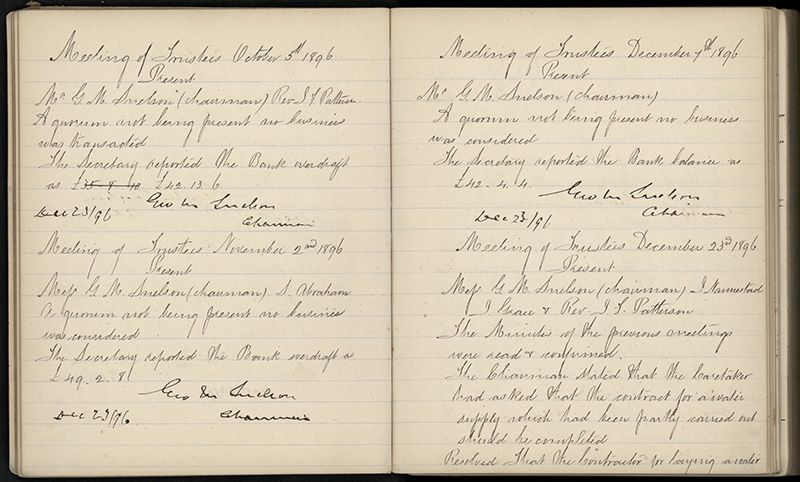 Meeting of Trustees October 5th 1896
Present
Mr G. M. Snelson (chairman) Rev J. F. Patterson
A quorum not being present no business
was transacted
The Secretary reported the Bank overdraft
as £35-8-10 £42.13.6.
Geo M Snelson
Dec 23/96
Chairman
Meeting of Trustees November 2nd 1896
Present
Mess G. M. Snelson (chairman) S. Abraham
A quorum not being present no business
was considered
The Secretary reported the Bank overdraft as
£49.2.8.
Geo M Snelson
Dec 23/96 Chairman
Meeting of Trustees December 7th 1896
Present
Mr G. M. Snelson (chairman)
A quorum not being present no business
was considered
The Secretary reported the Bank balance as
£42.4.4.
Geo M Snelson
Dec 23/96 Chairman
Meeting of Trustees December 23rd 1896
Present
Mess G. M. Snelson (chairman) J Nannestad
J Grace & Rev J. F. Patterson
The Minutes of the previous meetings
were read & confirmed.
The Chairman stated that the Caretaker
had asked that the contract for a water
supply which had been partly carried out
should be completed
Resolved That the Contractor for laying a water